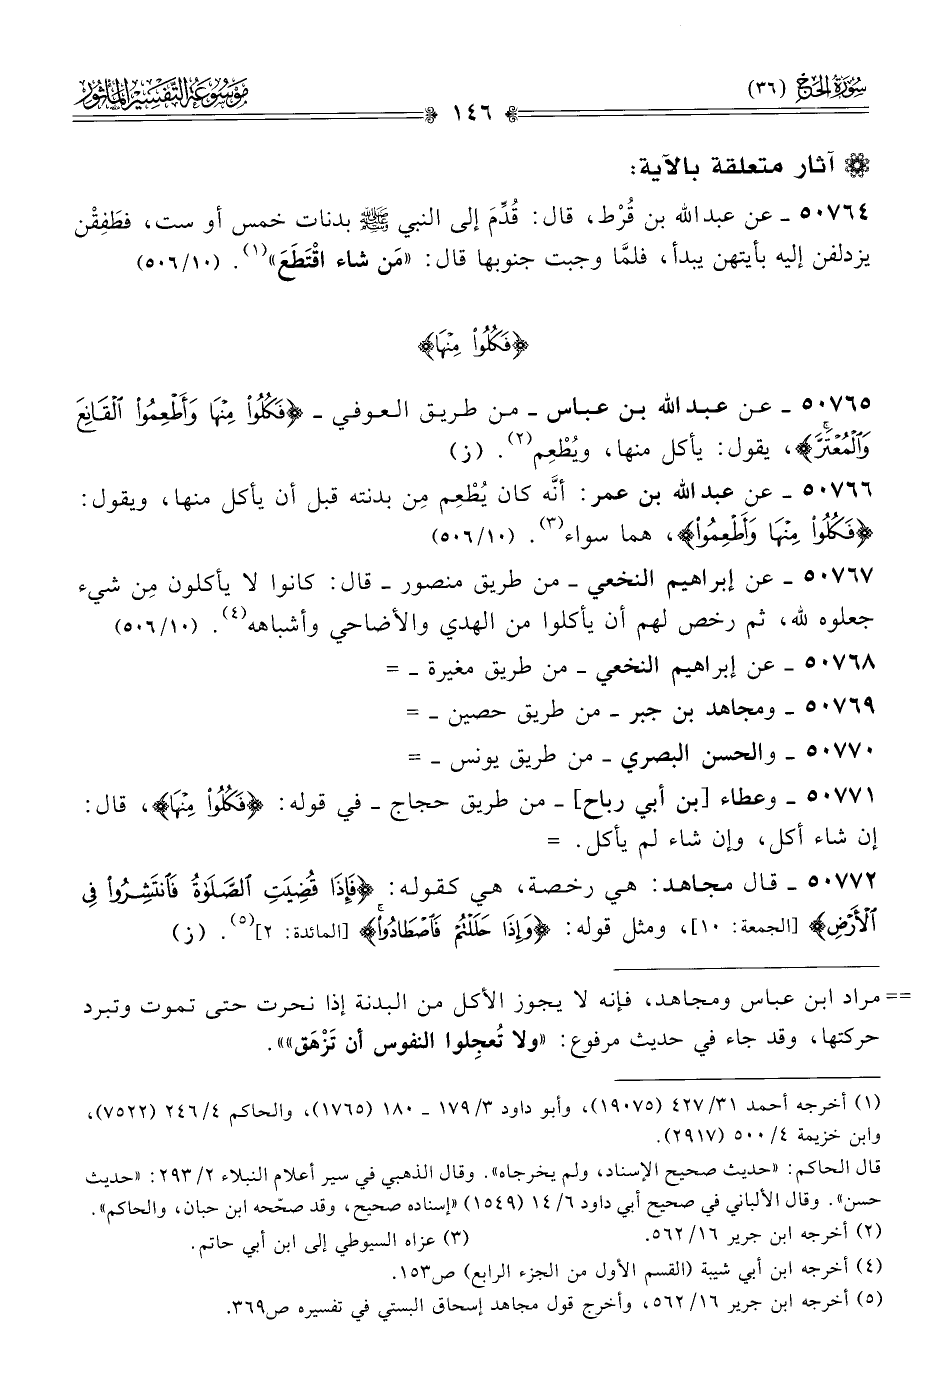 سُورَةُ الحَجّ (٣٦)
١٤٦
مَوْسُوعَةُ التَّفْسِيرِ المَأْثُور
آثار متعلقة بالآية:
٥٠٧٦٤ ـ عن عبدالله بن قُرْط، قال: قُدِّمَ إلى النبي ﷺ بدنات خمس أو ست، فطَفِقْن
يزدلفن إليه بأيتهن يبدأ، فلمَّا وجبت جنوبها قال: «مَن شاء اقْتَطَعَ»(١). (٥٠٦/١٠)
﴿فَكُلُوا۟ مِنْهَا﴾
٥٠٧٦٥ ـ عن عبدالله بن عباس ـ من طريق العوفي ـ ﴿فَكُلُوا۟ مِنْهَا وَأَطْعِمُوا۟ ٱلْقَانِعَ
وَٱلْمُعْتَرَّ﴾، يقول: يأكل منها، ويُطْعِم(٢). (ز)
٥٠٧٦٦ ـ عن عبدالله بن عمر: أنَّه كان يُطْعِم مِن بدنته قبل أن يأكل منها، ويقول:
﴿فَكُلُوا۟ مِنْهَا وَأَطْعِمُوا۟﴾، هما سواء(٣). (٥٠٦/١٠)
٥٠٧٦٧ ـ عن إبراهيم النخعي ـ من طريق منصور ـ قال: كانوا لا يأكلون مِن شيء
جعلوه لله، ثم رخص لهم أن يأكلوا من الهدي والأضاحي وأشباهه(٤). (٥٠٦/١٠)
٥٠٧٦٨ ـ عن إبراهيم النخعي ـ من طريق مغيرة ـ =
٥٠٧٦٩ ـ ومجاهد بن جبر ـ من طريق حصين ـ =
٥٠٧٧٠ ـ والحسن البصري ـ من طريق يونس ـ =
٥٠٧٧١ ـ وعطاء [بن أبي رباح] ـ من طريق حجاج ـ في قوله: ﴿فَكُلُوا۟ مِنْهَا﴾، قال:
إن شاء أكل، وإن شاء لم يأكل. =
٥٠٧٧٢ ـ قال مجاهد: هي رخصة، هي كقوله: ﴿فَإِذَا قُضِيَتِ ٱلصَّلَوٰةُ فَٱنتَشِرُوا۟ فِى
ٱلْأَرْضِ﴾ [الجمعة: ١٠]، ومثل قوله: ﴿وَإِذَا حَلَلْتُمْ فَٱصْطَادُوا۟ۚ﴾ [المائدة: ٢](٥). (ز)
== مراد ابن عباس ومجاهد، فإنه لا يجوز الأكل من البدنة إذا نحرت حتى تموت وتبرد
حركتها، وقد جاء في حديث مرفوع: «ولا تُعجِلوا النفوس أن تَزْهَق»».
(١) أخرجه أحمد ٤٢٧/٣١ (١٩٠٧٥)، وأبو داود ١٧٩/٣ ـ ١٨٠ (١٧٦٥)، والحاكم ٢٤٦/٤ (٧٥٢٢)،
وابن خزيمة ٥٠٠/٤ (٢٩١٧).
قال الحاكم: «حديث صحيح الإسناد، ولم يخرجاه». وقال الذهبي في سير أعلام النبلاء ٢٩٣/٢: «حديث
حسن». وقال الألباني في صحيح أبي داود ١٤/٦ (١٥٤٩) «إسناده صحيح، وقد صحّحه ابن حبان، والحاكم».
(٢) أخرجه ابن جرير ٥٦٢/١٦. (٣) عزاه السيوطي إلى ابن أبي حاتم.
(٤) أخرجه ابن أبي شيبة (القسم الأول من الجزء الرابع) ص١٥٣.
(٥) أخرجه ابن جرير ٥٦٢/١٦، وأخرج قول مجاهد إسحاق البستي في تفسيره ص٣٦٩.